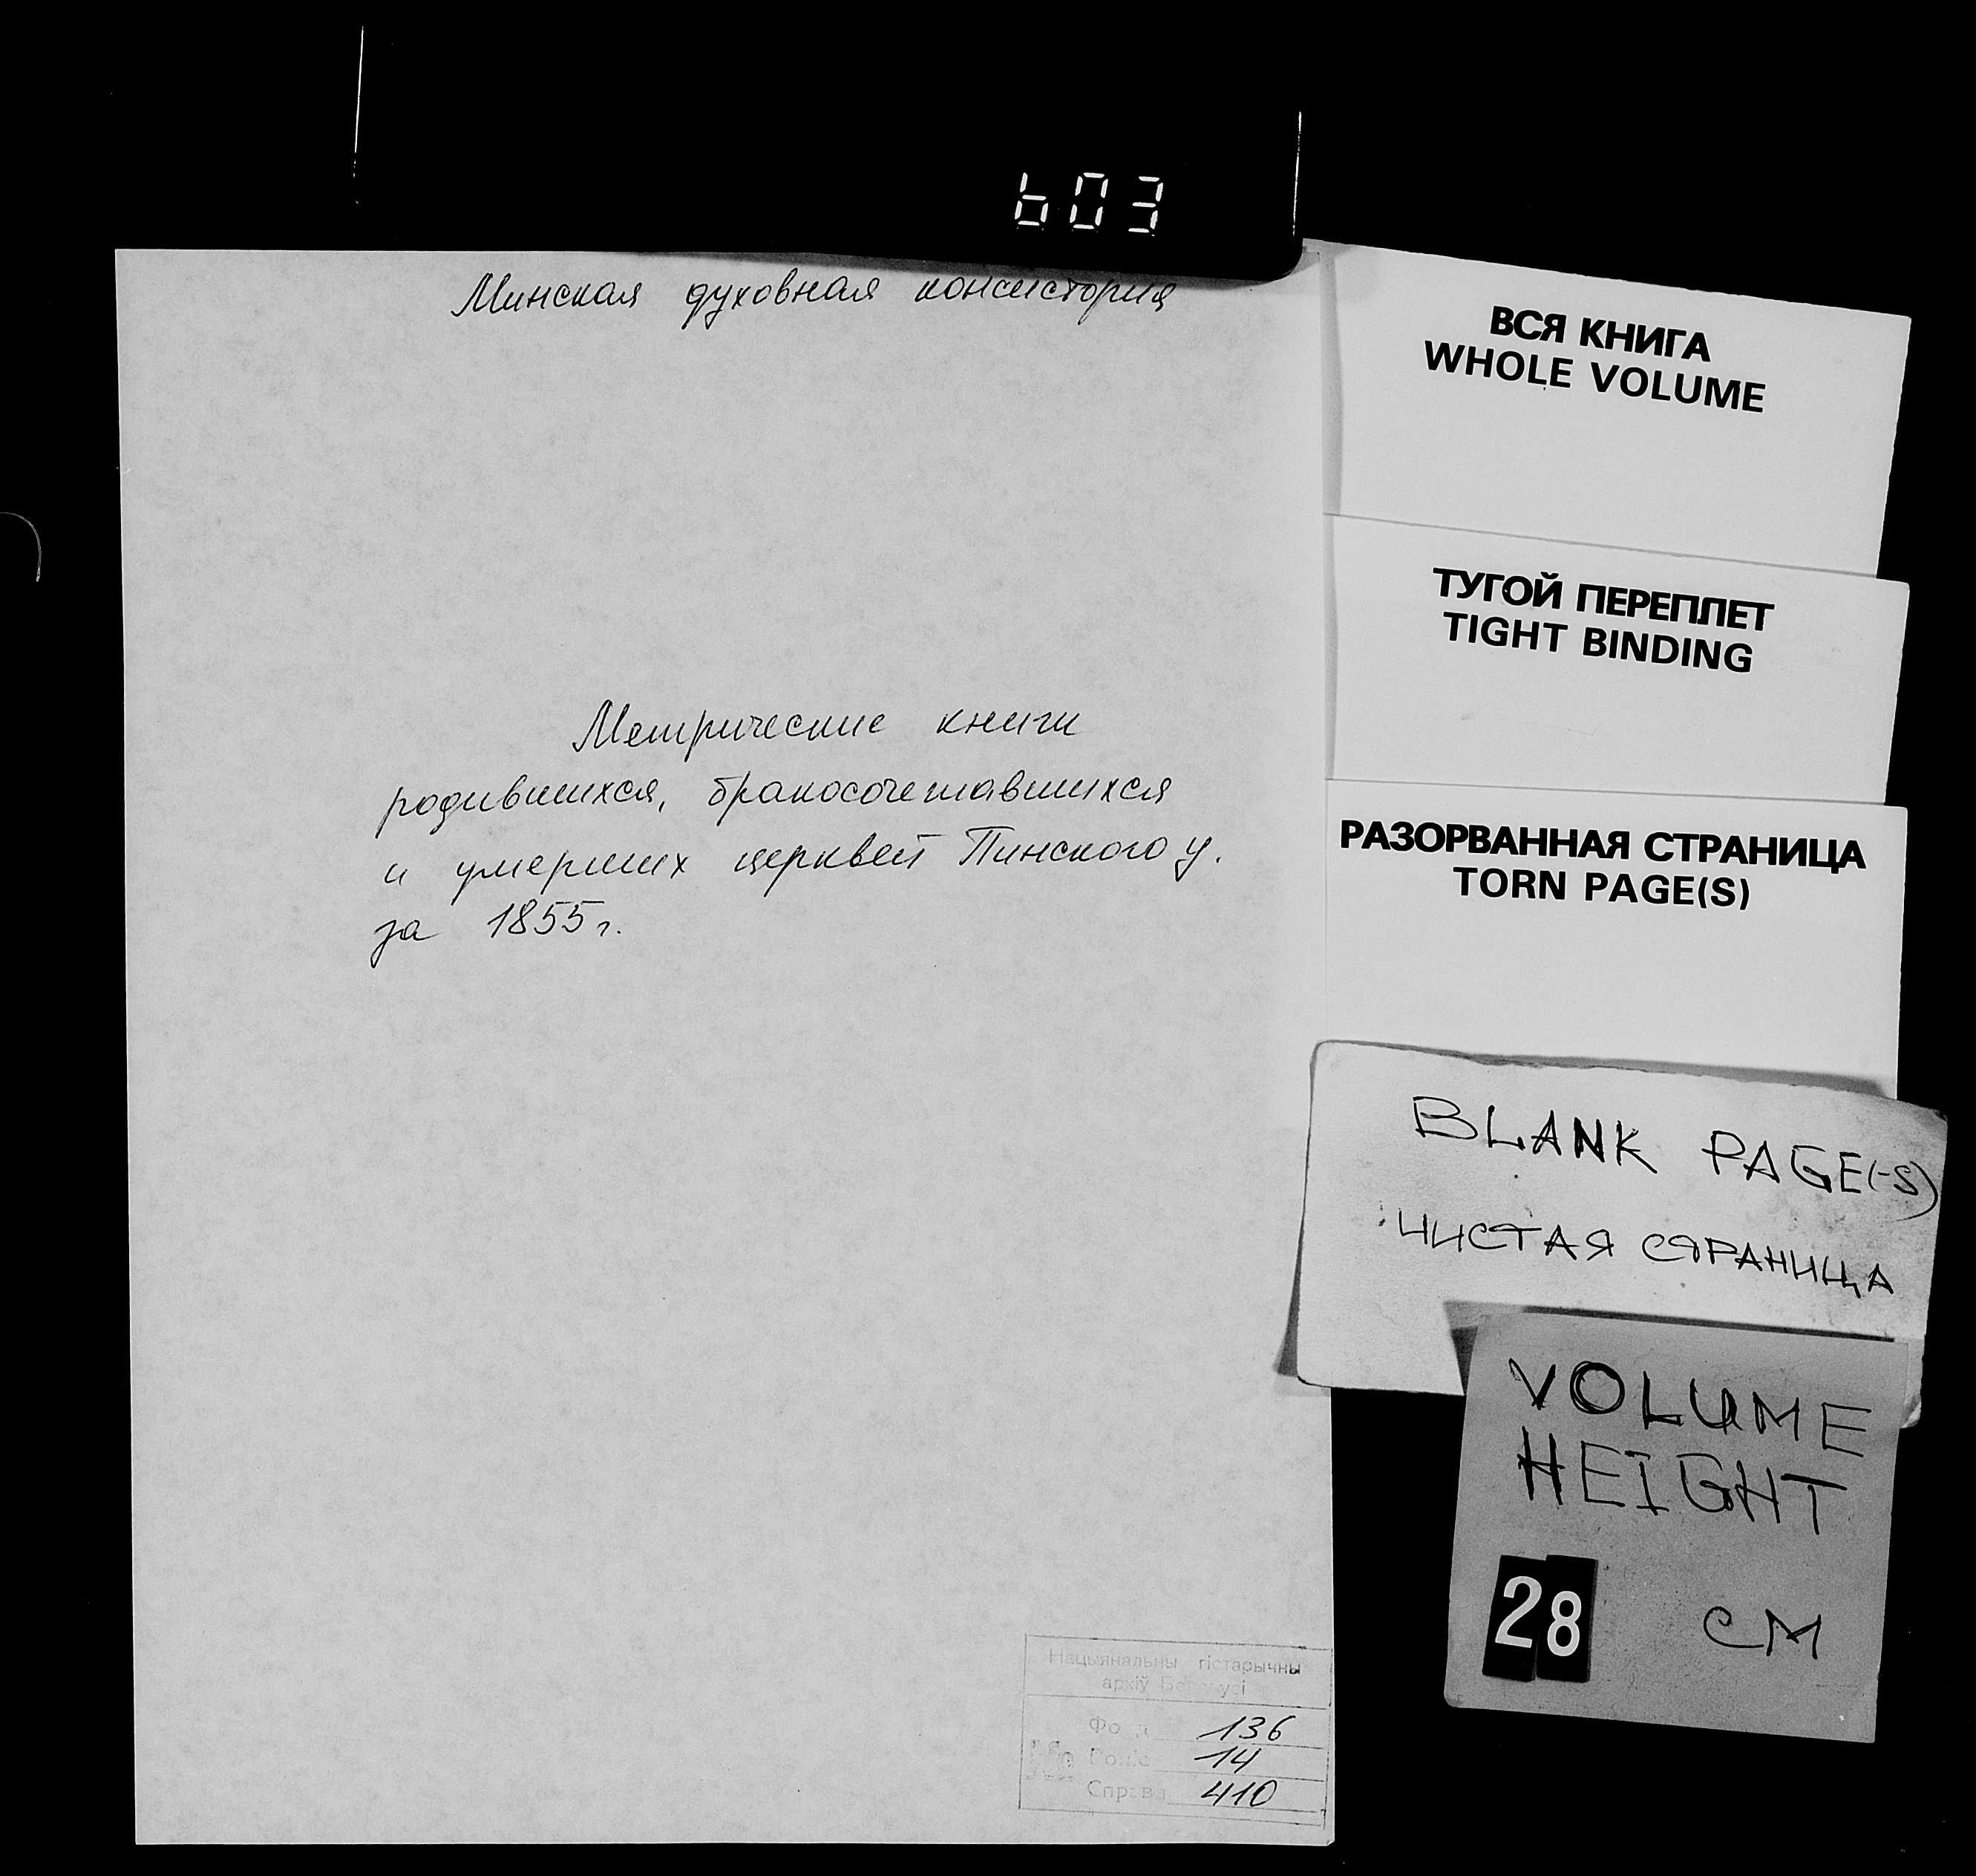 603
Минская духовная консистория
Метрические книги
родившихся, бракосочетавшихся
и умерших церквей Пинского у.
за 1855 г.
Нацыянальны гістарычны
архіў Беларусі
Фонд 136
Вопіс 14
Справа 410
ВСЯ КНИГА
WHOLE VOLUME
ТУГОЙ ПЕРЕПЛЕТ
TIGHT BINDING
РАЗОРВАННАЯ СТРАНИЦА
TORN PAGE(S)
BLANK PAGE(-S)
ЧИСТАЯ СТРАНИЦА
VOLUME
HEIGHT
28 CM